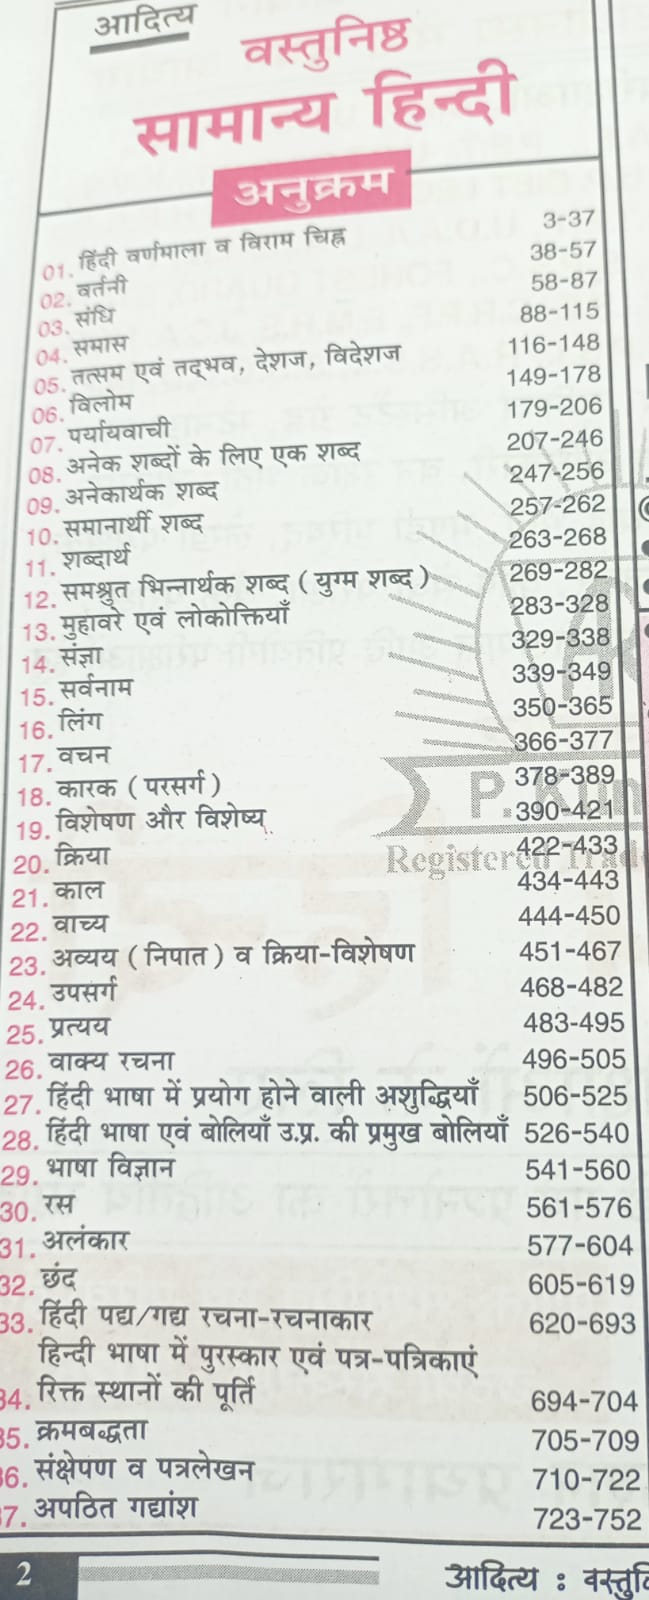 आदित्य
वस्तुनिष्ठ
सामान्य हिन्दी
अनुक्रम
01. हिंदी वर्णमाला व विराम चिह्न 3-37
02. वर्तनी 38-57
03. संधि 58-87
04. समास 88-115
05. तत्सम एवं तद्भव, देशज, विदेशज 116-148
06. विलोम 149-178
07. पर्यायवाची 179-206
08. अनेक शब्दों के लिए एक शब्द 207-246
09. अनेकार्थक शब्द 247-256
10. समानार्थी शब्द 257-262
11. शब्दार्थ 263-268
12. समश्रुत भिन्नार्थक शब्द (युग्म शब्द) 269-282
13. मुहावरे एवं लोकोक्तियाँ 283-328
14. संज्ञा 329-338
15. सर्वनाम 339-349
16. लिंग 350-365
17. वचन 366-377
18. कारक (परसर्ग) 378-389
19. विशेषण और विशेष्य 390-421
20. क्रिया 422-433
21. काल 434-443
22. वाच्य 444-450
23. अव्यय (निपात) व क्रिया-विशेषण 451-467
24. उपसर्ग 468-482
25. प्रत्यय 483-495
26. वाक्य रचना 496-505
27. हिंदी भाषा में प्रयोग होने वाली अशुद्धियाँ 506-525
28. हिंदी भाषा एवं बोलियाँ उ.प्र. की प्रमुख बोलियाँ 526-540
29. भाषा विज्ञान 541-560
30. रस 561-576
31. अलंकार 577-604
32. छंद 605-619
33. हिंदी पद्य/गद्य रचना-रचनाकार 620-693
हिन्दी भाषा में पुरस्कार एवं पत्र-पत्रिकाएं
34. रिक्त स्थानों की पूर्ति 694-704
35. क्रमबद्धता 705-709
36. संक्षेपण व पत्रलेखन 710-722
37. अपठित गद्यांश 723-752
P.
Registered
2
आदित्य :